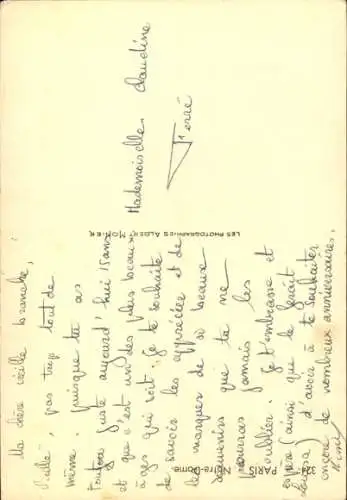 Ma chère vieille branche,
Vieille, pas trop tout de
même. puisque tu as
toujours juste aujourd'hui 15 ans
et que c'est un des plus beaux
âges qui soit. Je te souhaite
de savoir les apprécier et de
les marquer de si beaux
souvenirs que tu ne
pourras jamais les
oublier. Je t'embrasse et
espère (ainsi que le ferait
) d'avoir à te souhaiter
encore de nombreux anniversaires.
Mademoiselle Claudine
Ferré
LES PHOTOGRAPHIES ALBERT MONIER
PARIS
Notre-Dame